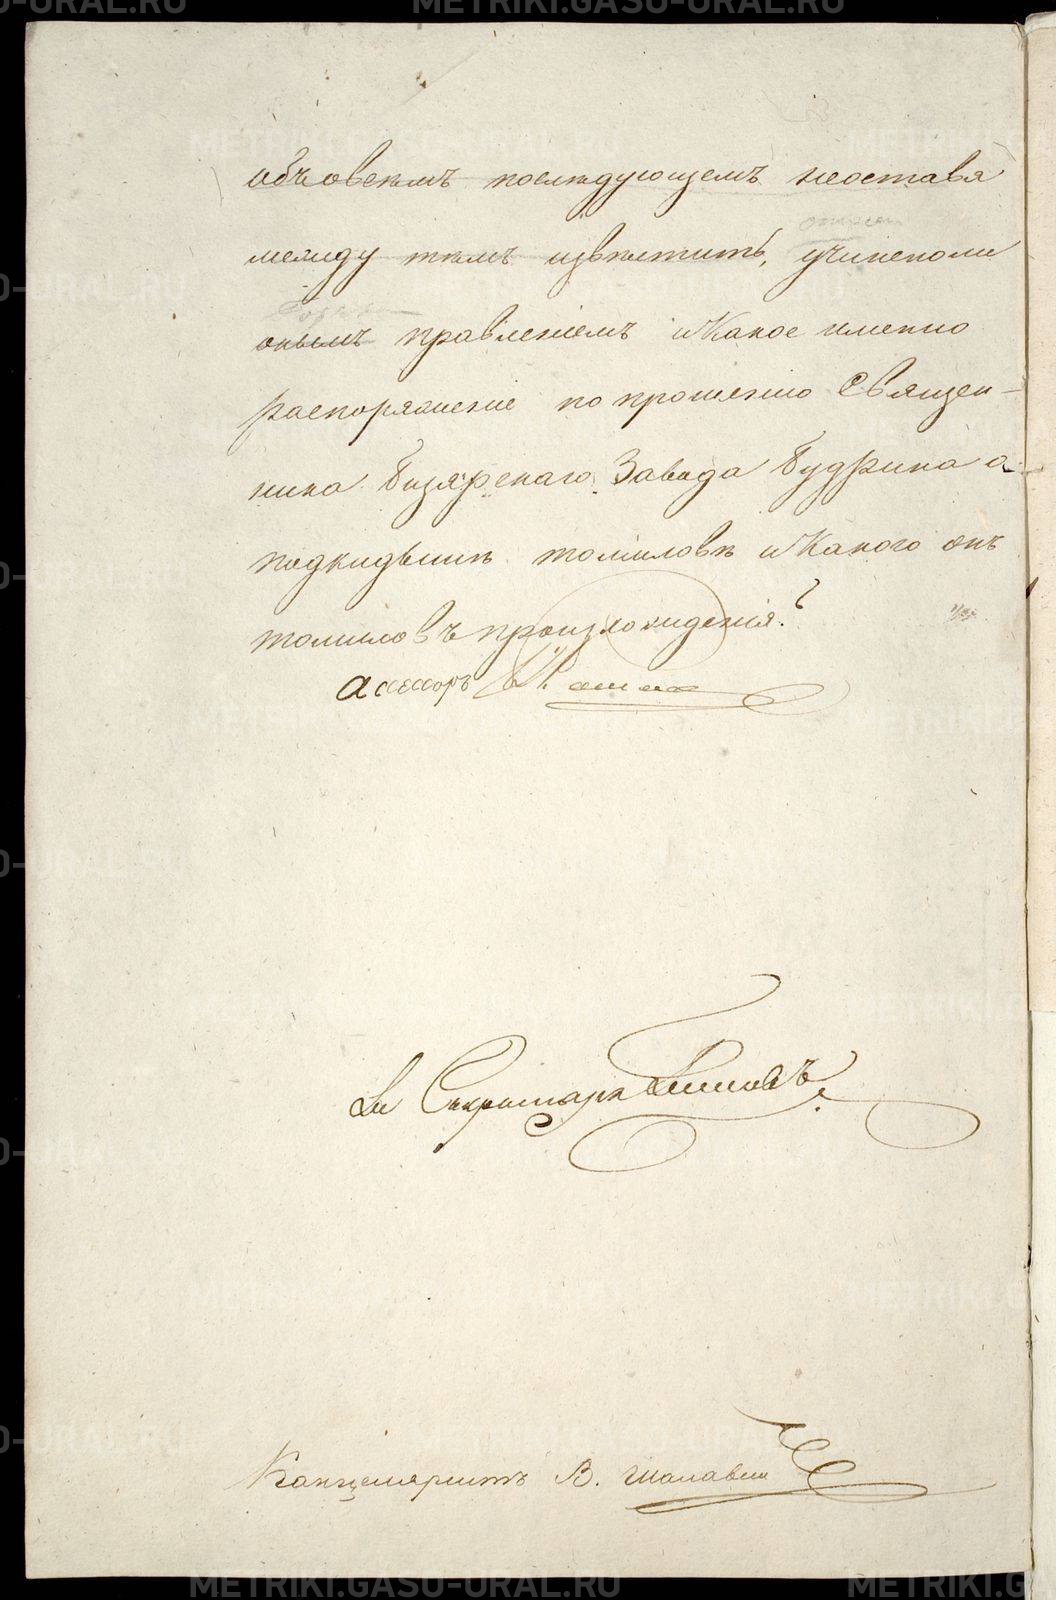 METRIKI.GASU-URAL.RU
обо всемъ последующемъ неоставя
между темъ известить, учинено ли
онымъ правленiемъ и какое именно
распоряженiе по прошенiю Священ-
ника Бизярскаго Завода Будрина о
подкидыше Томилове и какого онъ
Томиловъ произхожденiя.
Асессоръ
За Секретаря
Канцеляристъ В. Шалавин